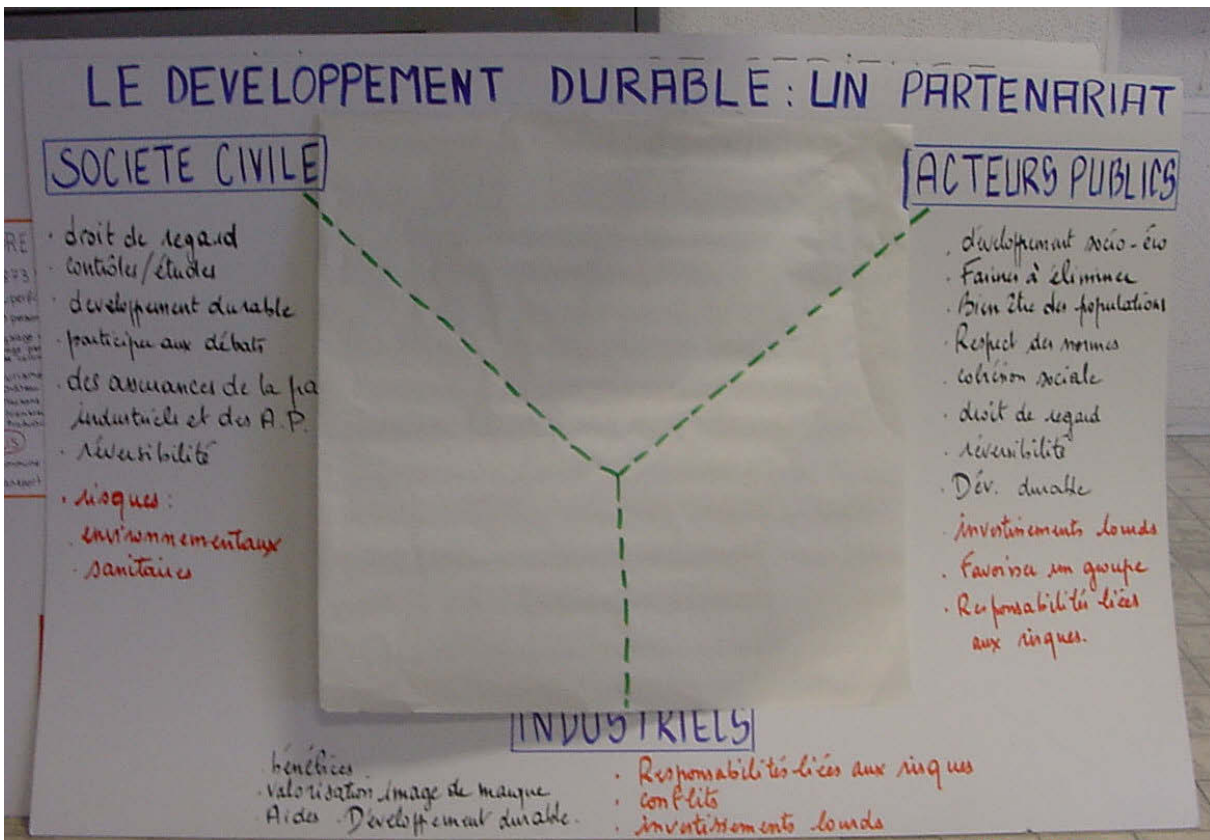 LE DEVELOPPEMENT DURABLE : UN PARTENARIAT
SOCIETE CIVILE
· droit de regard
· contrôles/études
· developpement durable
· participer aux débats
· des assurances de la pa
industriels et des A.P.
· réversibilité
· risques :
· environnementaux
· sanitaires
ACTEURS PUBLICS
· développement socio-éco
· Farines à éliminer
· Bien être des populations
· Respect des normes
· cohésion sociale
· droit de regard
· réversibilité
· Dév. durable
· investissements lourds
· Favoriser un groupe
· Responsabilités liées
aux risques.
INDUSTRIELS
· bénéfices.
· valorisation image de marque
· Aides . Développement durable.
· Responsabilités liées aux risques
· conflits
· investissements lourds